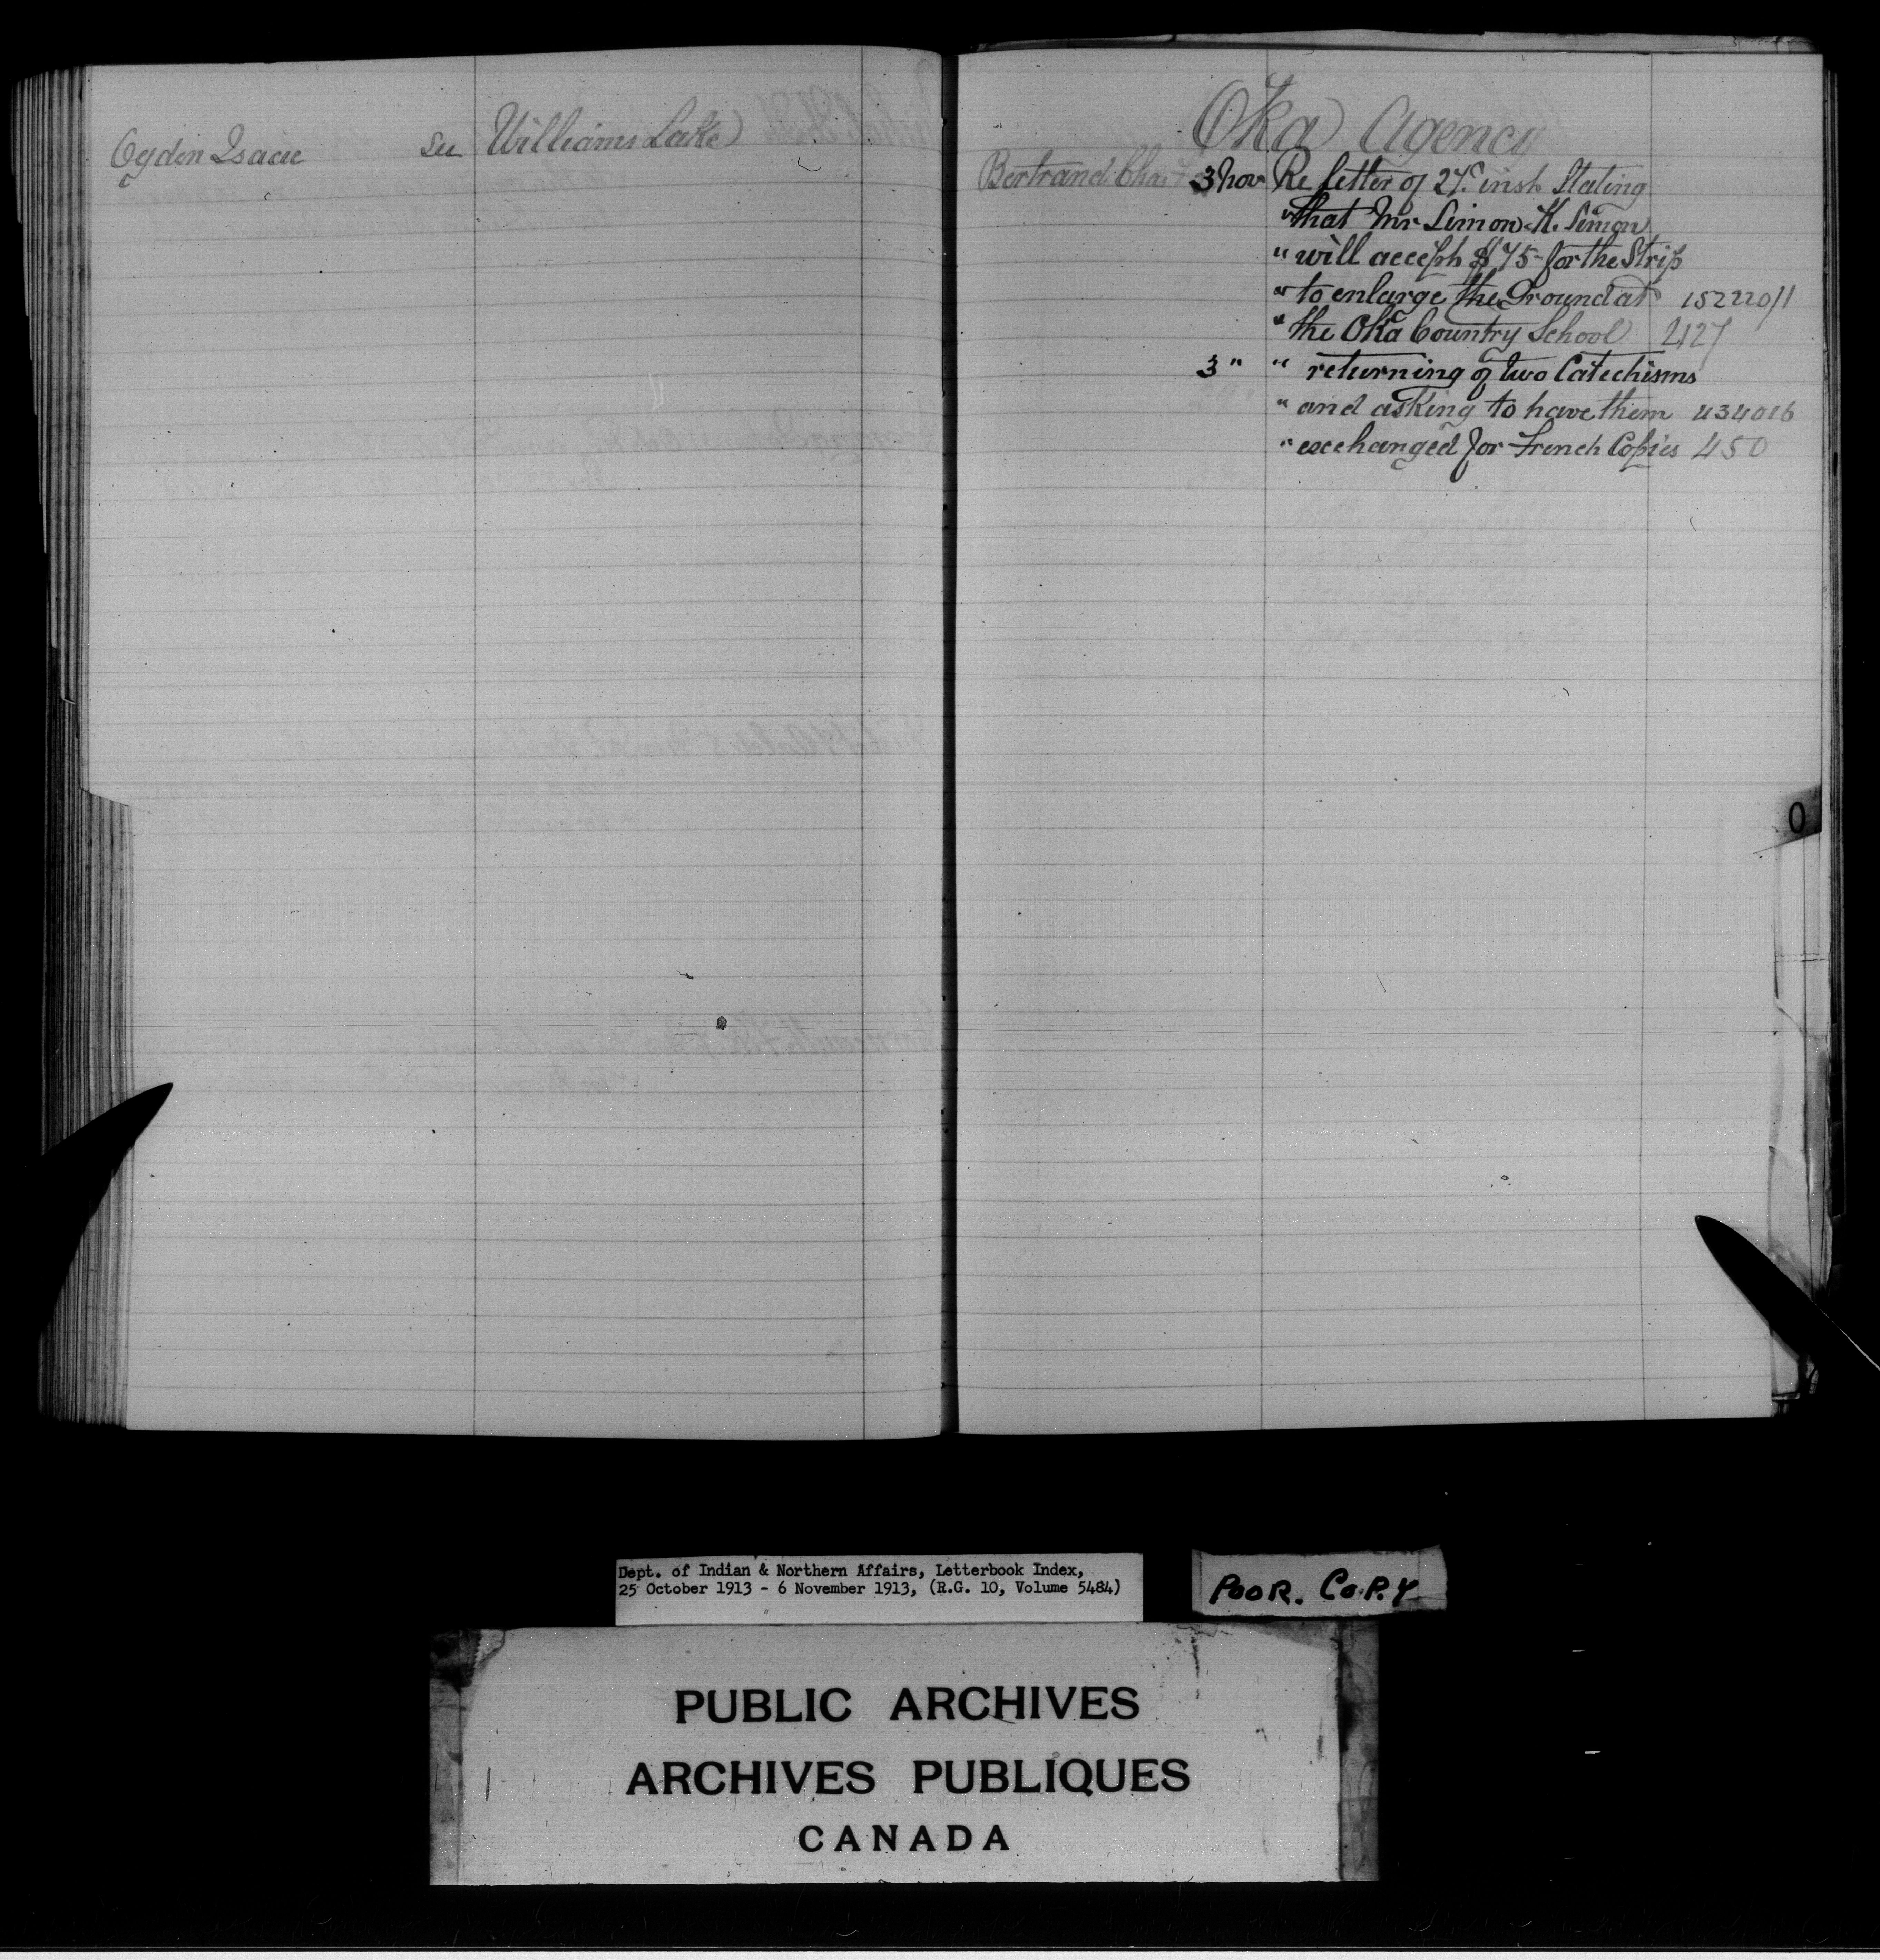 Ogden Isaac see Williams Lake
Oka Agency
Bertrand Chas 3 Nov Re letter of 27th inst Stating
" that Mr Simon K. Simon
" will accept $75- for the Strip
" to enlarge the Ground at 152220/1
" the Oka Country School 427
3 " " returning of two Catechisms
" and asking to have them 434016
" exchanged for French Copies 450
O
Dept. of Indian & Northern Affairs, Letterbook Index,
25 October 1913 - 6 November 1913, (R.G. 10, Volume 5484)
POOR. COPY
PUBLIC ARCHIVES
ARCHIVES PUBLIQUES
CANADA